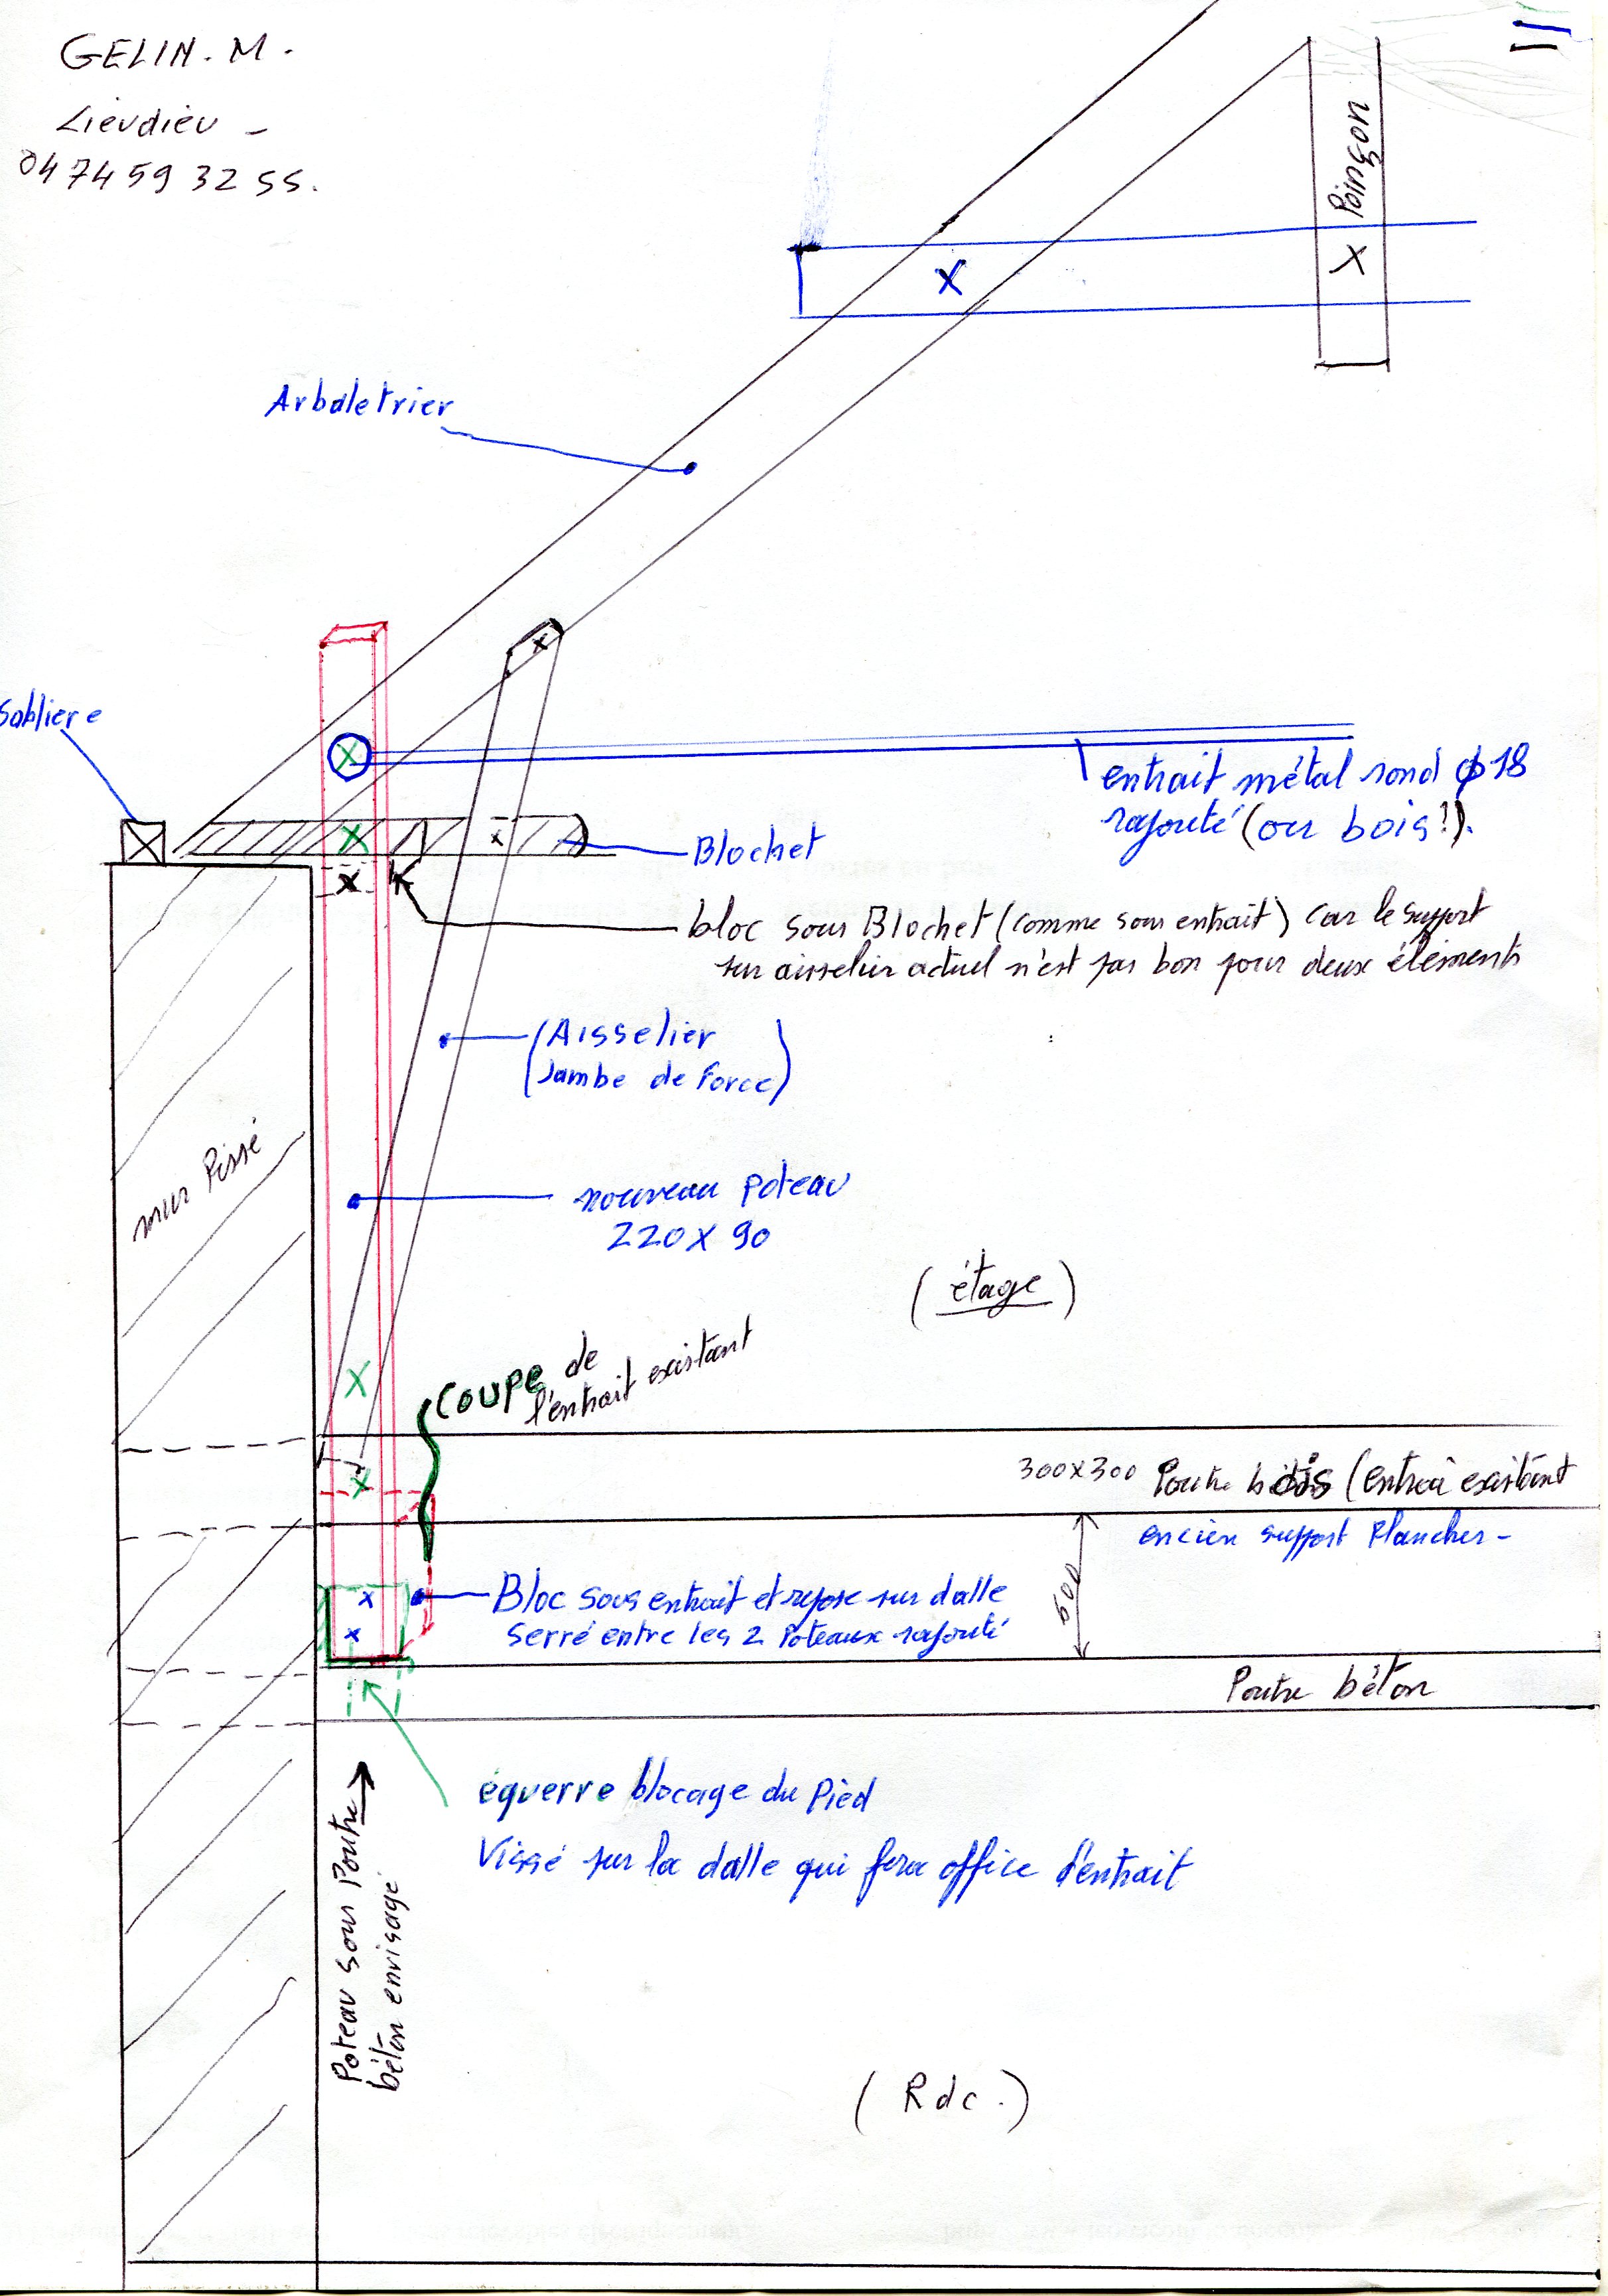 GELIN. M.
Lieudieu -
04 74 59 32 55.
Poinçon
Arbaletrier
Sabliere
entrait métal rond ϕ 18
rajouté (ou bois !).
Blochet
bloc sous Blochet (comme sous entrait) car le support
sur aisselier actuel n'est pas bon pour deux éléments
(Aisselier
Jambe de Force)
mur Pissé
nouveau poteau
220 X 90
(étage)
Coupe de
l'entrait existant
300x300 Poutre bois (entrai existant
encien support Plancher -
500
Bloc sous entrait et repose sur dalle
Serré entre les 2 Poteaux rajouté
Poutre béton
équerre blocage du Pied
Vissé sur la dalle qui fera office d'entrait
Poteau sous Poutre
béton envisagé
(Rdc.)